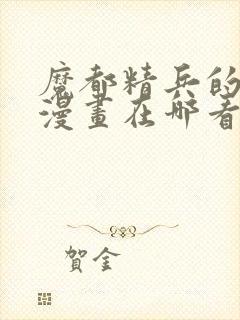 魔都精兵的
漫畫在哪看
賀金